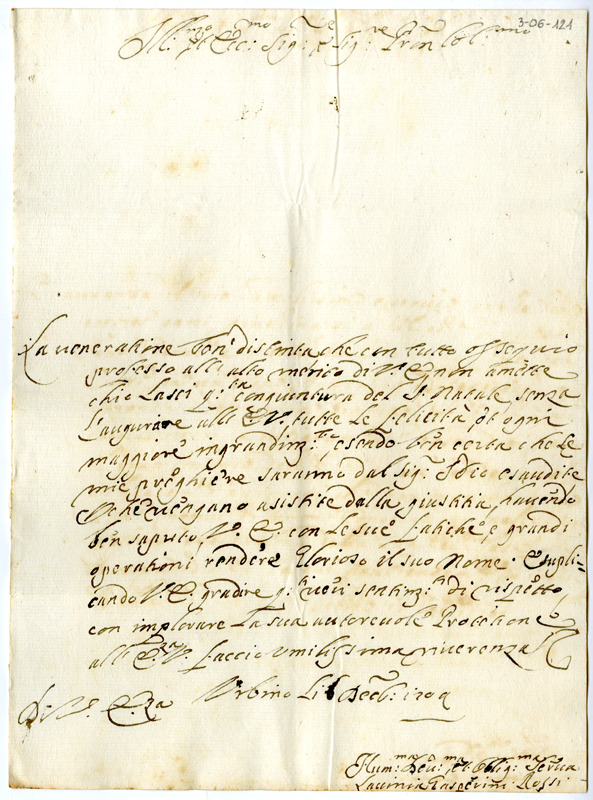 3-06-121
Ill:mo et Ecc:mo Sig:re e Sig:re Pron Col:mo
La veneratione ben distinta, che con tutto ossequio
professo all'alto merito di V. E. non amette
ch'io lasci q:ta congiuntura del S. Natale senza
l'augurare all' E. V. tutte le felicità, et ogni
maggiore ingrandim:to, esendo ben certa che le
mie preghiere saranno dal Sig: Idio esaudite
che vengano asistite dalla giustitia, havendo
ben saputo V. E. con le sue fatiche, e grandi
operationi rendere glorioso il suo Nome. Suppli=
cando V. E. gradire q: veri sentim:ti di rispetto
con implorare la sua autorevole Protetione
all' E. V. faccio umilissima riverenza
Di V. E.za Urbino li Decb:
Hum:ma Dev:ma et Oblig:ma Serva
Lavinia Gasperini Rossi